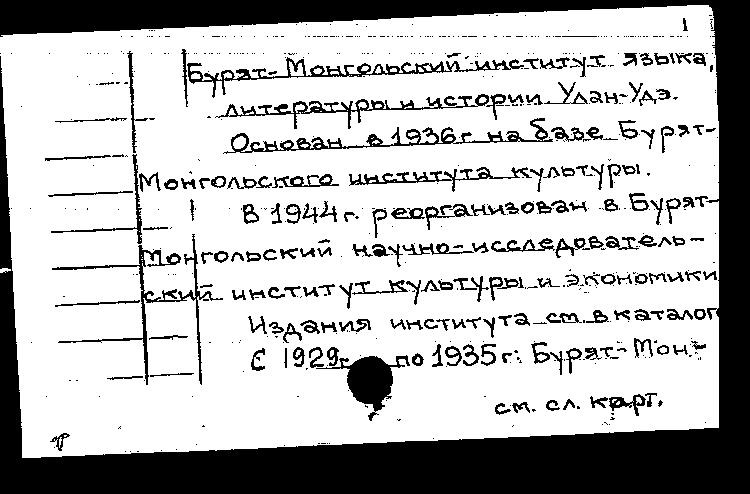 1
Бурят-Монгольский институт языка,
литературы и истории. Улан-Удэ.
Основан в 1936 г на базе Бурят-
Монгольского института культуры.
В 1944 г. реорганизован в Бурят-
Монгольский научно-исследователь-
ский институт культуры и экономики
Издания института см. в каталог
С 1929г. по 1935 г: Бурят-Мон-
см. сл. карт.